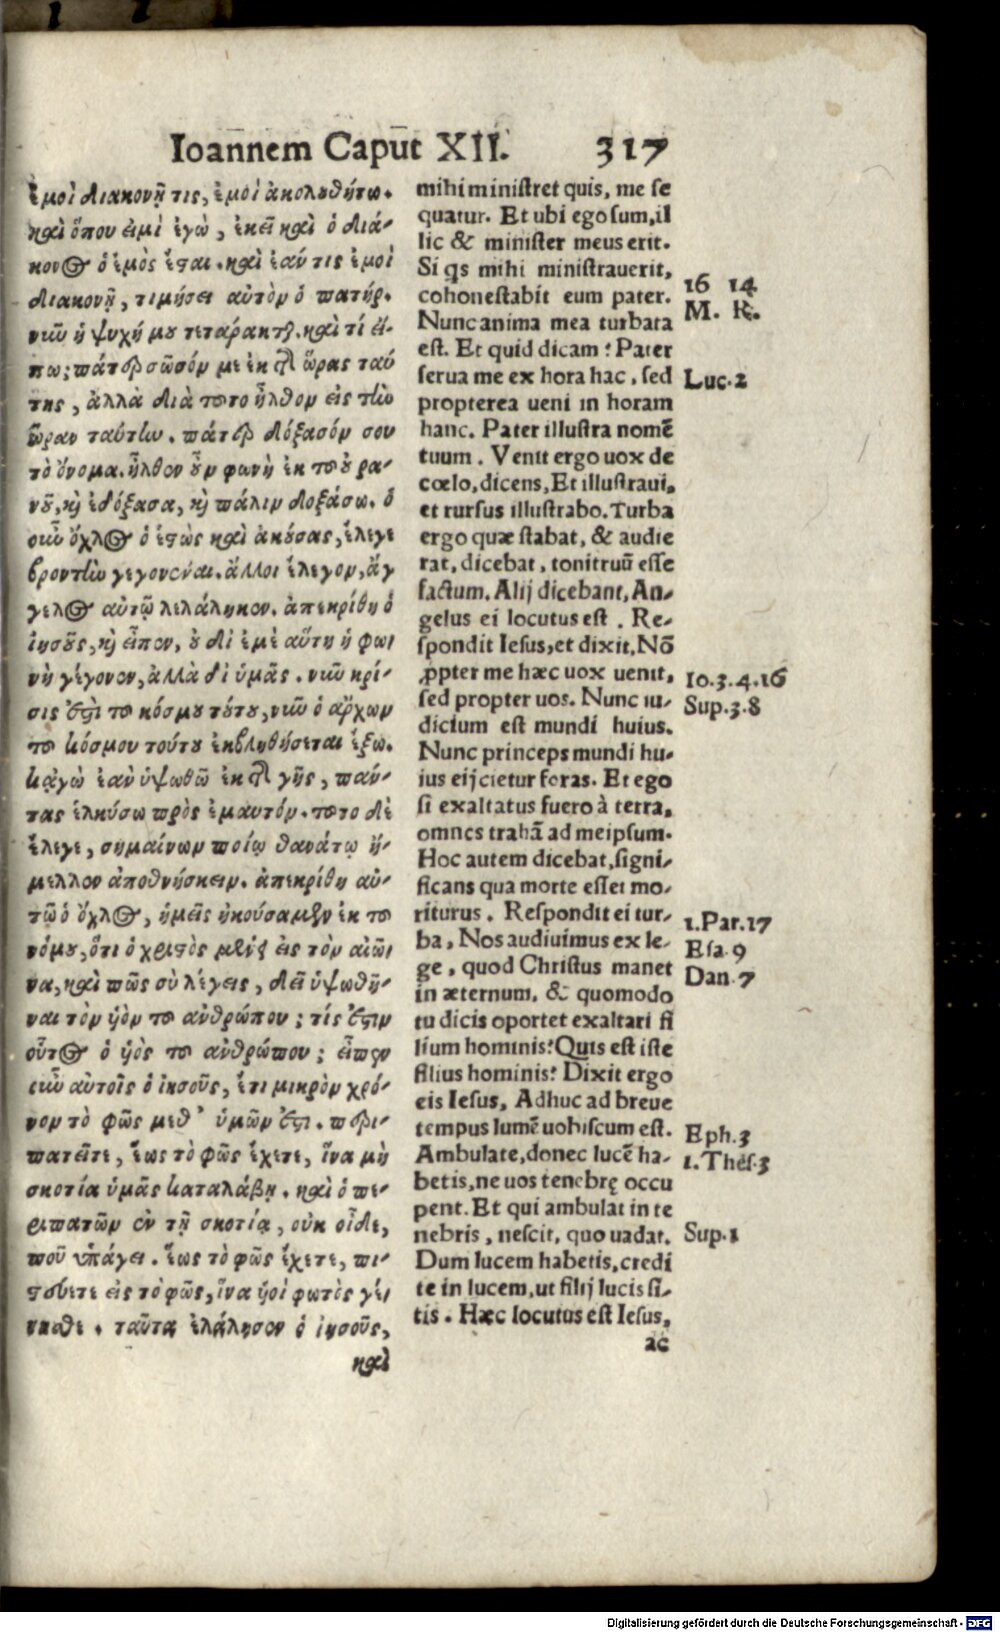 Ioannem Caput XII. 317
ἐμοὶ διακονῇ τις, ἐμοὶ ἀκολουθήτω.
καὶ ὅπου εἰμὶ ἐγὼ, ἐκεῖ καὶ ὁ διά-
κονος ὁ ἐμὸς ἔσται. καὶ ἐάν τις ἐμοὶ
διακονῇ, τιμήσει αὐτὸν ὁ πατήρ.
νῦν ἡ ψυχή μου τετάρακται. καὶ τί εἴ-
πω; πάτερ σῶσόν με ἐκ τῆς ὥρας ταύ
της, ἀλλὰ διὰ τοῦτο ἦλθον εἰς τὴν
ὥραν ταύτην. πάτερ δόξασόν σου
τὸ ὄνομα. ἦλθεν οὖν φωνὴ ἐκ τοῦ οὐρα-
νοῦ, καὶ ἐδόξασα, καὶ πάλιν δοξάσω. ὁ
οὖν ὄχλος ὁ ἑστὼς καὶ ἀκούσας, ἔλεγε
βροντὴν γεγονέναι. ἄλλοι ἔλεγον, ἄγ
γελος αὐτῷ λελάληκεν. ἀπεκρίθη ὁ
ἰησοῦς, καὶ εἶπεν, οὐ δι ἐμὲ αὕτη ἡ φω-
νὴ γέγονεν, ἀλλὰ δι ὑμᾶς. νῦν κρί-
σις ἐστὶ τοῦ κόσμου τούτου, νῦν ὁ ἄρχων
τοῦ κόσμου τούτου ἐκβληθήσεται ἔξω.
κᾀγὼ ἐὰν ὑψωθῶ ἐκ τῆς γῆς, πάν-
τας ἑλκύσω πρὸς ἐμαυτόν. τοῦτο δὲ
ἔλεγε, σημαίνων ποίῳ θανάτῳ ἤ-
μελλεν ἀποθνήσκειν. ἀπεκρίθη αὐ-
τῷ ὁ ὄχλος, ἡμεῖς ἠκούσαμεν ἐκ τοῦ
νόμου, ὅτι ὁ χριστὸς μένει εἰς τὸν αἰῶ-
να, καὶ πῶς σὺ λέγεις, δεῖ ὑψωθῆ-
ναι τὸν ὑὸν τοῦ ἀνθρώπου; τίς ἐστιν
οὗτος ὁ ὑὸς τοῦ ἀνθρώπου; εἶπεν
οὖν αὐτοῖς ὁ ἰησοῦς, ἔτι μικρὸν χρό-
νον τὸ φῶς μεθ’ ὑμῶν ἐστι. περι-
πατεῖτε, ἕως τὸ φῶς ἔχετε, ἵνα μὴ
σκοτία ὑμᾶς καταλάβῃ. καὶ ὁ πε-
ριπατῶν ἐν τῇ σκοτίᾳ, οὐκ οἶδε,
ποῦ ὑπάγει. ἕως τὸ φῶς ἔχετε, πι-
στεύετε εἰς τὸ φῶς, ἵνα ὑοὶ φωτὸς γέ-
νησθε. ταῦτα ἐλάλησεν ὁ ἰησοῦς,
καὶ
mihi ministret quis, me se
quatur. Et ubi ego sum, il
lic & minister meus erit.
Si qs mihi ministrauerit,
cohonestabit eum pater.
Nunc anima mea turbata
est. Et quid dicam? Pater
serua me ex hora hac, sed
propterea ueni in horam
hanc. Pater illustra nomē
tuum. Venit ergo uox de
cœlo, dicens, Et illustraui,
et rursus illustrabo. Turba
ergo quæ stabat, & audie
rat, dicebat, tonitruū esse
factum. Alij dicebant, An-
gelus ei locutus est. Re-
spondit Iesus, et dixit, Nō
ꝓpter me hæc uox uenit,
sed propter uos. Nunc iu-
dicium est mundi huius.
Nunc princeps mundi hu-
ius eijcietur foras. Et ego
si exaltatus fuero à terra,
omnes trahā ad meipsum.
Hoc autem dicebat, signi-
ficans qua morte esset mo-
riturus. Respondit ei tur-
ba, Nos audiuimus ex le-
ge, quod Christus manet
in æternum, & quomodo
tu dicis oportet exaltari fi
lium hominis? Quis est iste
filius hominis? Dixit ergo
eis Iesus, Adhuc ad breue
tempus lumē uobiscum est.
Ambulate, donec lucē ha-
betis, ne uos tenebrę occu
pent. Et qui ambulat in te
nebris, nescit, quo uadat.
Dum lucem habetis, credi
te in lucem, ut filij lucis si-
tis. Hæc locutus est Iesus,
ac
16 14
M. R.
Luc.2
Io.3.4.16
Sup.3.8
1.Par.17
Esa.9
Dan.7
Eph.3
1.Thes.3
Sup.1
Digitalisierung gefördert durch die Deutsche Forschungsgemeinschaft - DFG